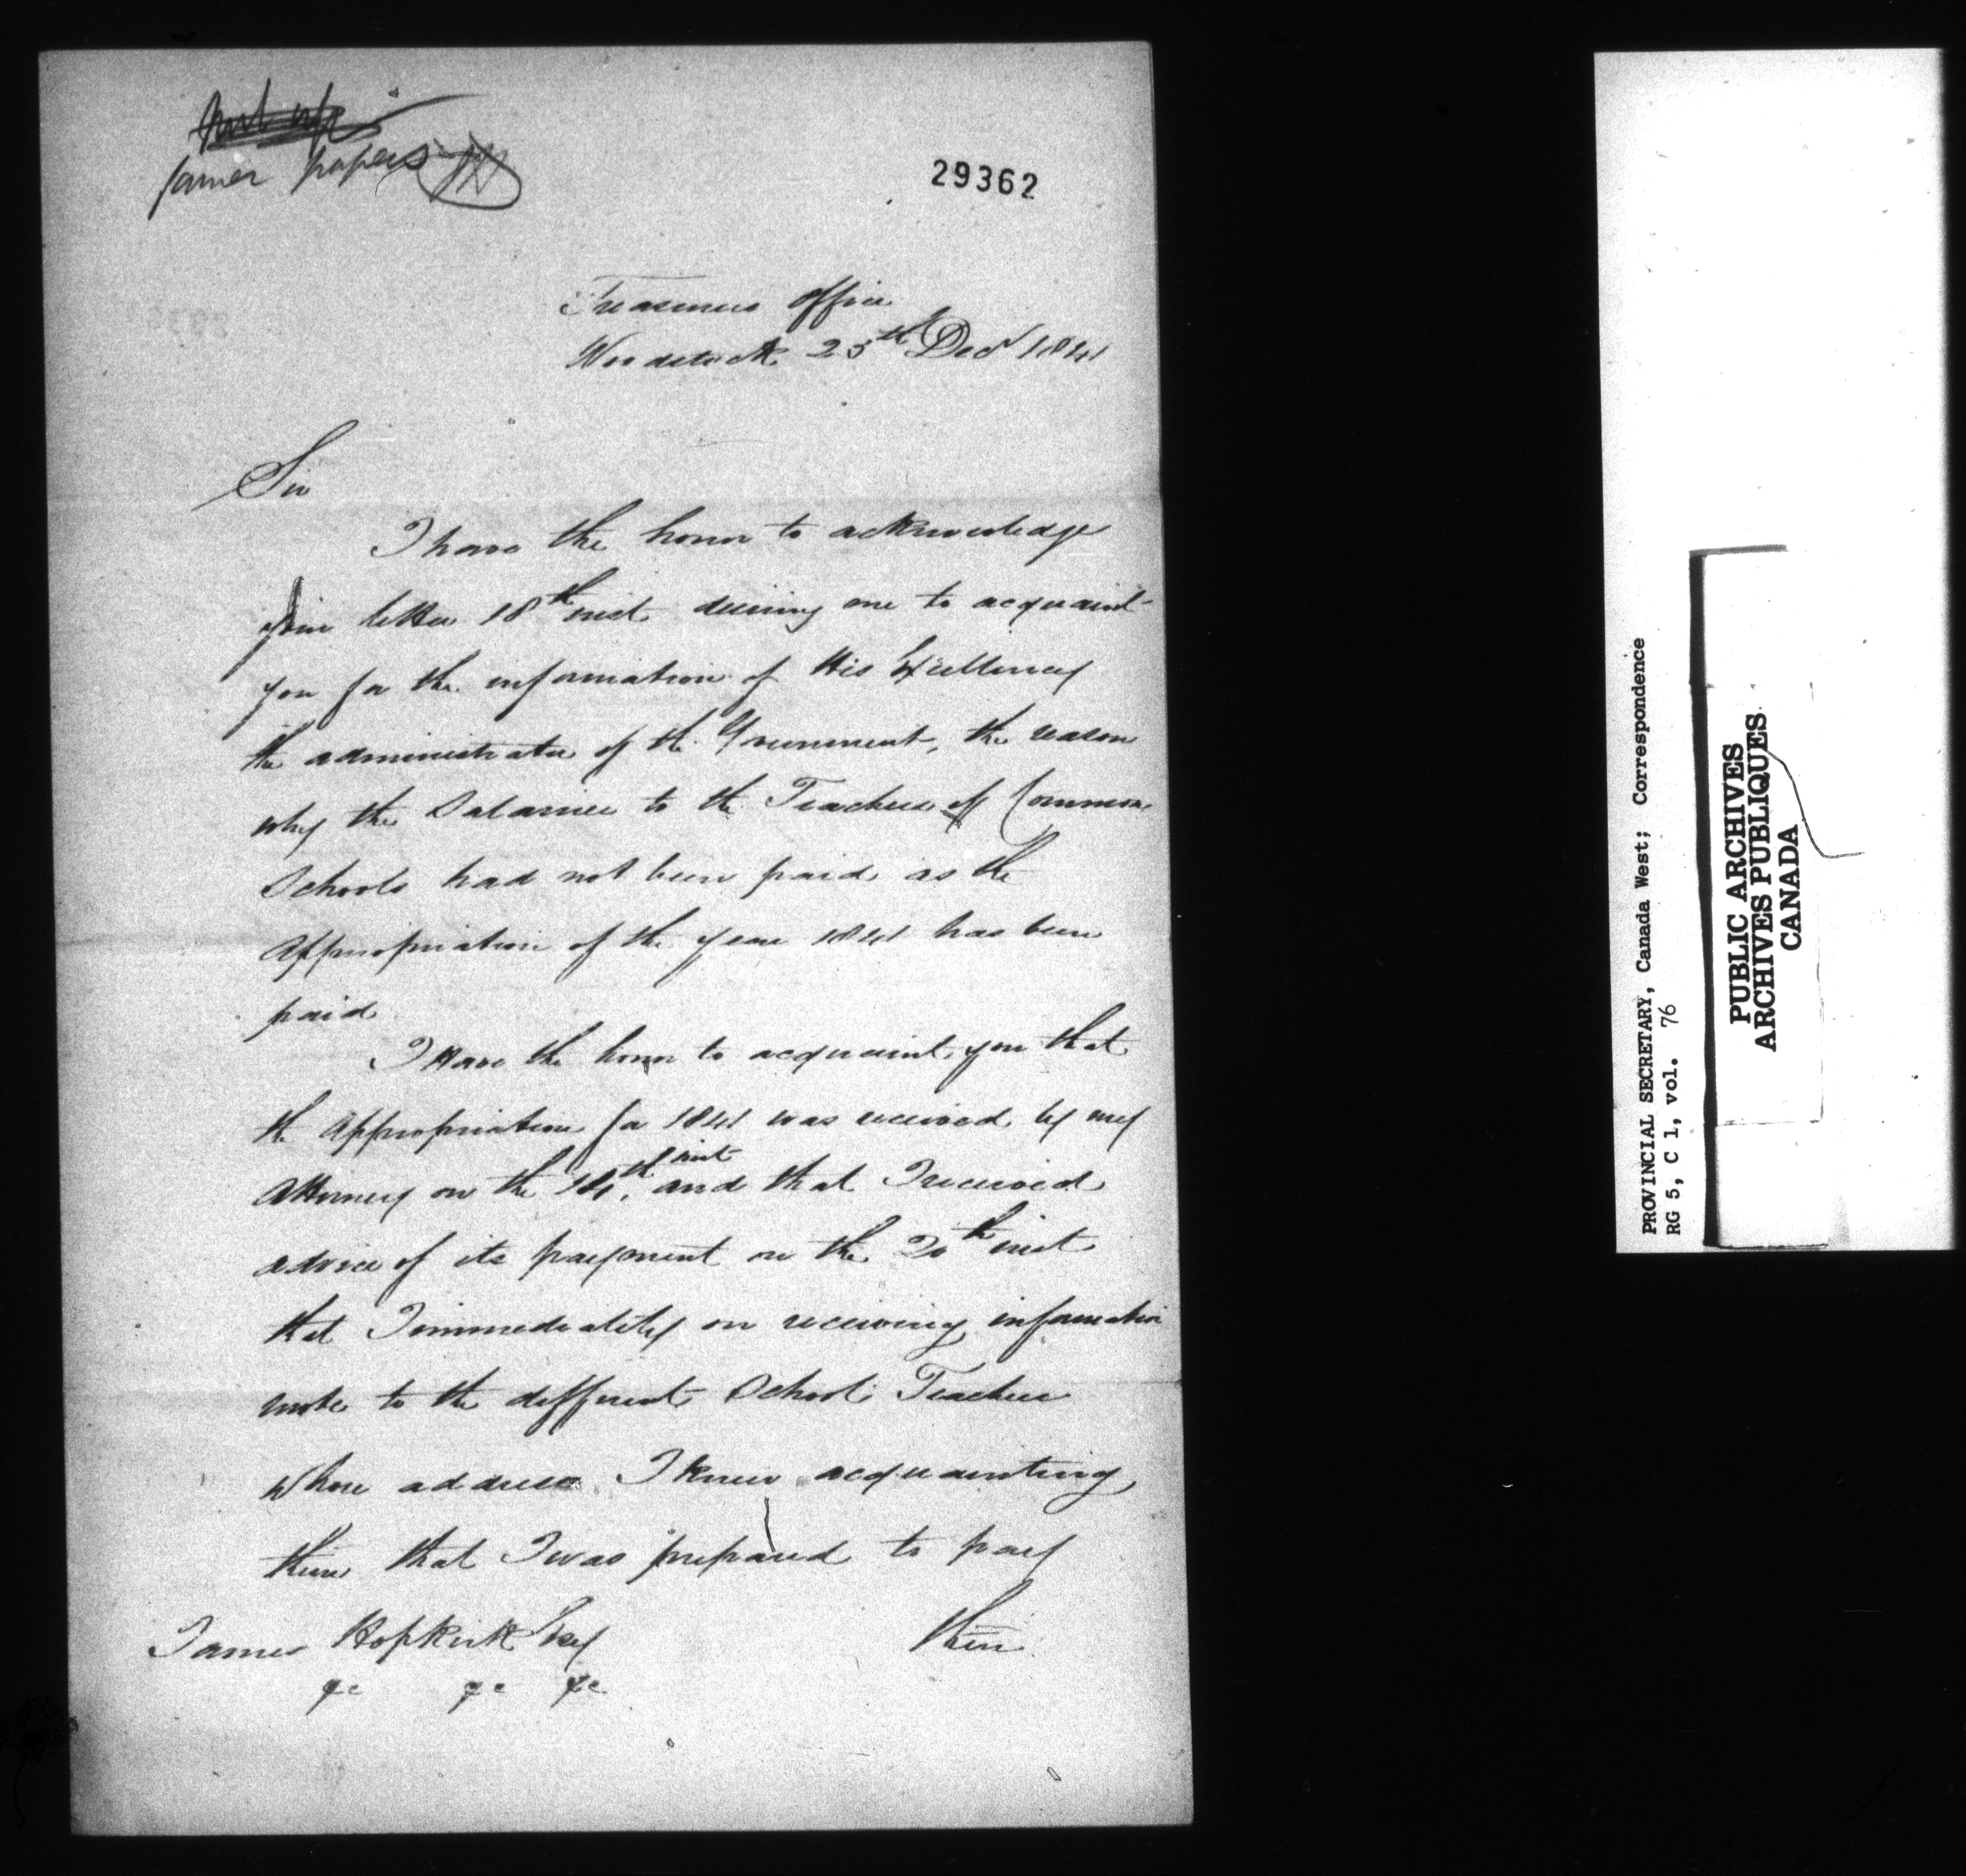 former papers
29362
Treasurers Office
Woodstock 25th Decr 1841
Sir
I have the honor to acknowledge
your letter 18th inst desiring me to acquaint
you for the information of His Excellency
the administrator of the Government, the reason
why the Salaries to the Teachers of Common
Schools had not been paid as the
Appropriation of the year 1841 has been
paid
I Have the honor to acquaint you that
the Appropriation for 1841 was received by my
Attorney on the 14th inst and that I received
advice of its payment on the 20th inst
that I immediately on receiving information
wrote to the different School Teachers
whose address I knew acquainting
them that I was prepared to pay
them
James Hopkirk Esq
&c &c &c
PROVINCIAL SECRETARY, Canada West; Correspondence
RG 5, C 1, vol. 76
PUBLIC ARCHIVES
ARCHIVES PUBLIQUES
CANADA